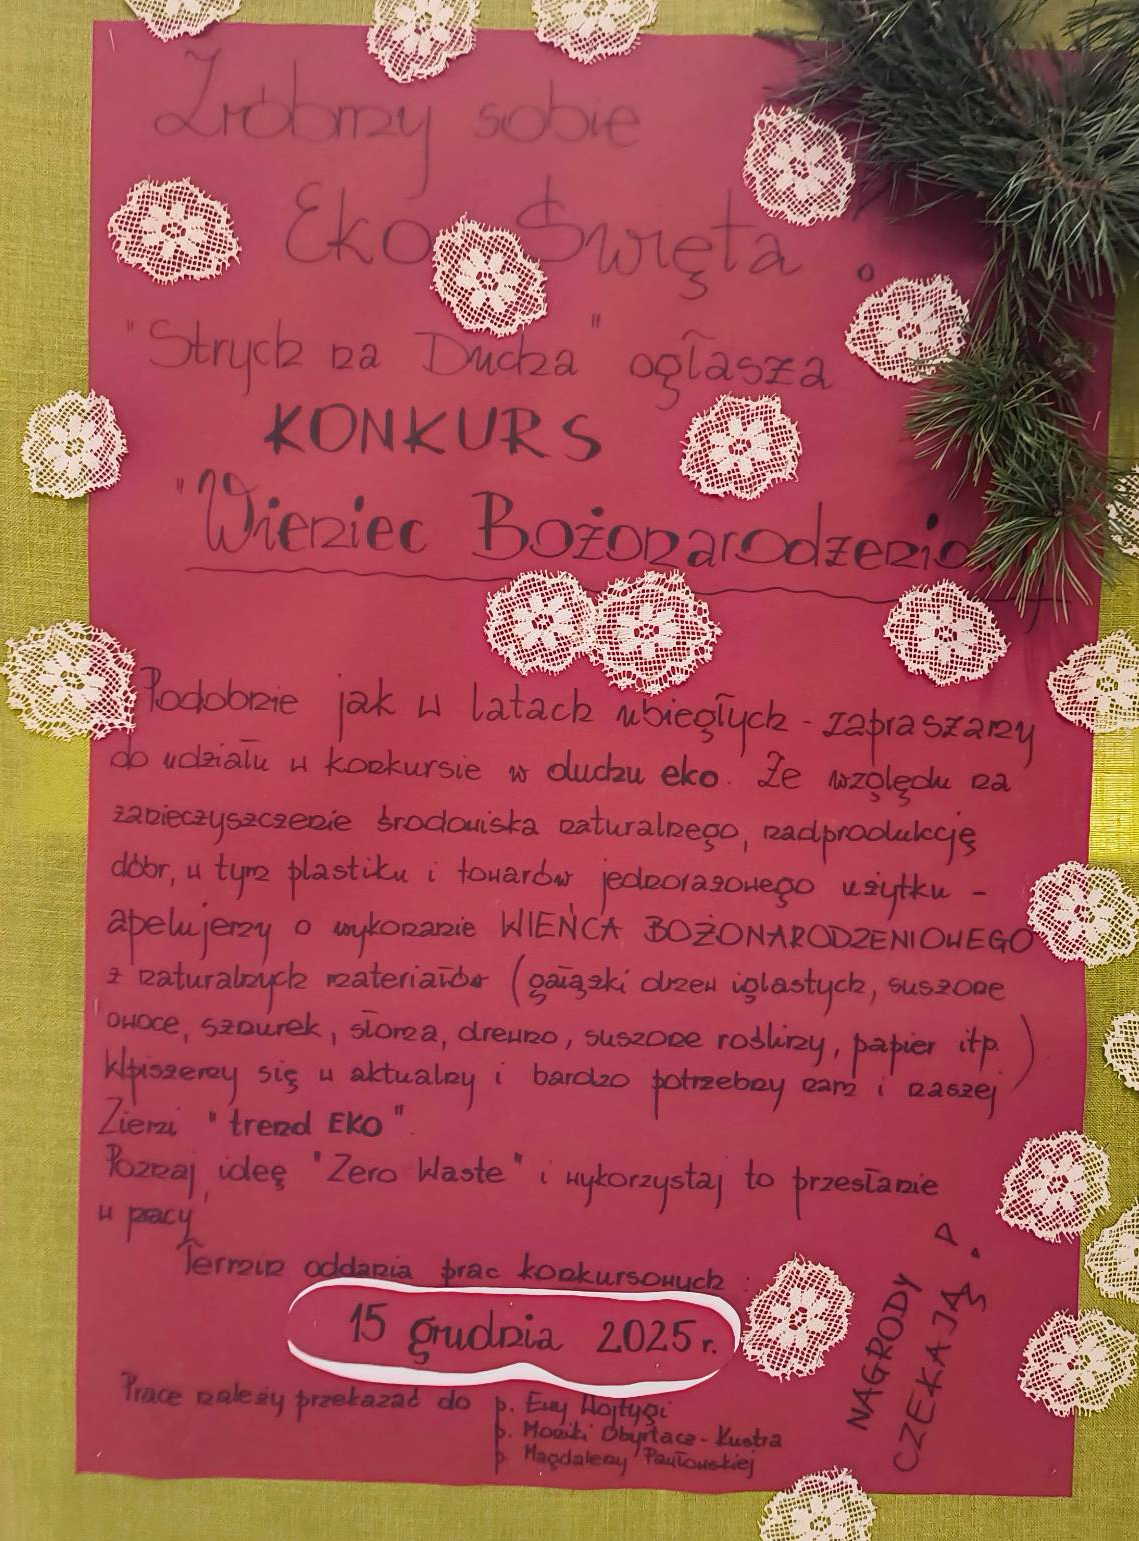 Zróbmy sobie
Eko Święta!
"Strych na Ducha" ogłasza
KONKURS
"Wieniec Bożonarodzenio
Podobnie jak w latach ubiegłych - zapraszamy
do udziału w konkursie w duchu eko. Ze względu na
zanieczyszczenie środowiska naturalnego, nadprodukcję
dóbr, w tym plastiku i towarów jednorazowego użytku -
apelujemy o wykonanie WIEŃCA BOŻONARODZENIOWEGO
z naturalnych materiałów (gałązki drzew iglastych, suszone
owoce, sznurek, słoma, drewno, suszone rośliny, papier itp.)
Wpiszemy się w aktualny i bardzo potrzebny nam i naszej
Ziemi "trend EKO".
Poznaj ideę "Zero Waste" i wykorzystaj to przesłanie
w pracy
Termin oddania prac konkursowych:
15 grudnia 2025 r.
Prace należy przekazać do p. Ewy Wojtygi
p. Moniki Obyrtacz-Kustra
p. Magdaleny Pawłowskiej
NAGRODY
CZEKAJĄ!